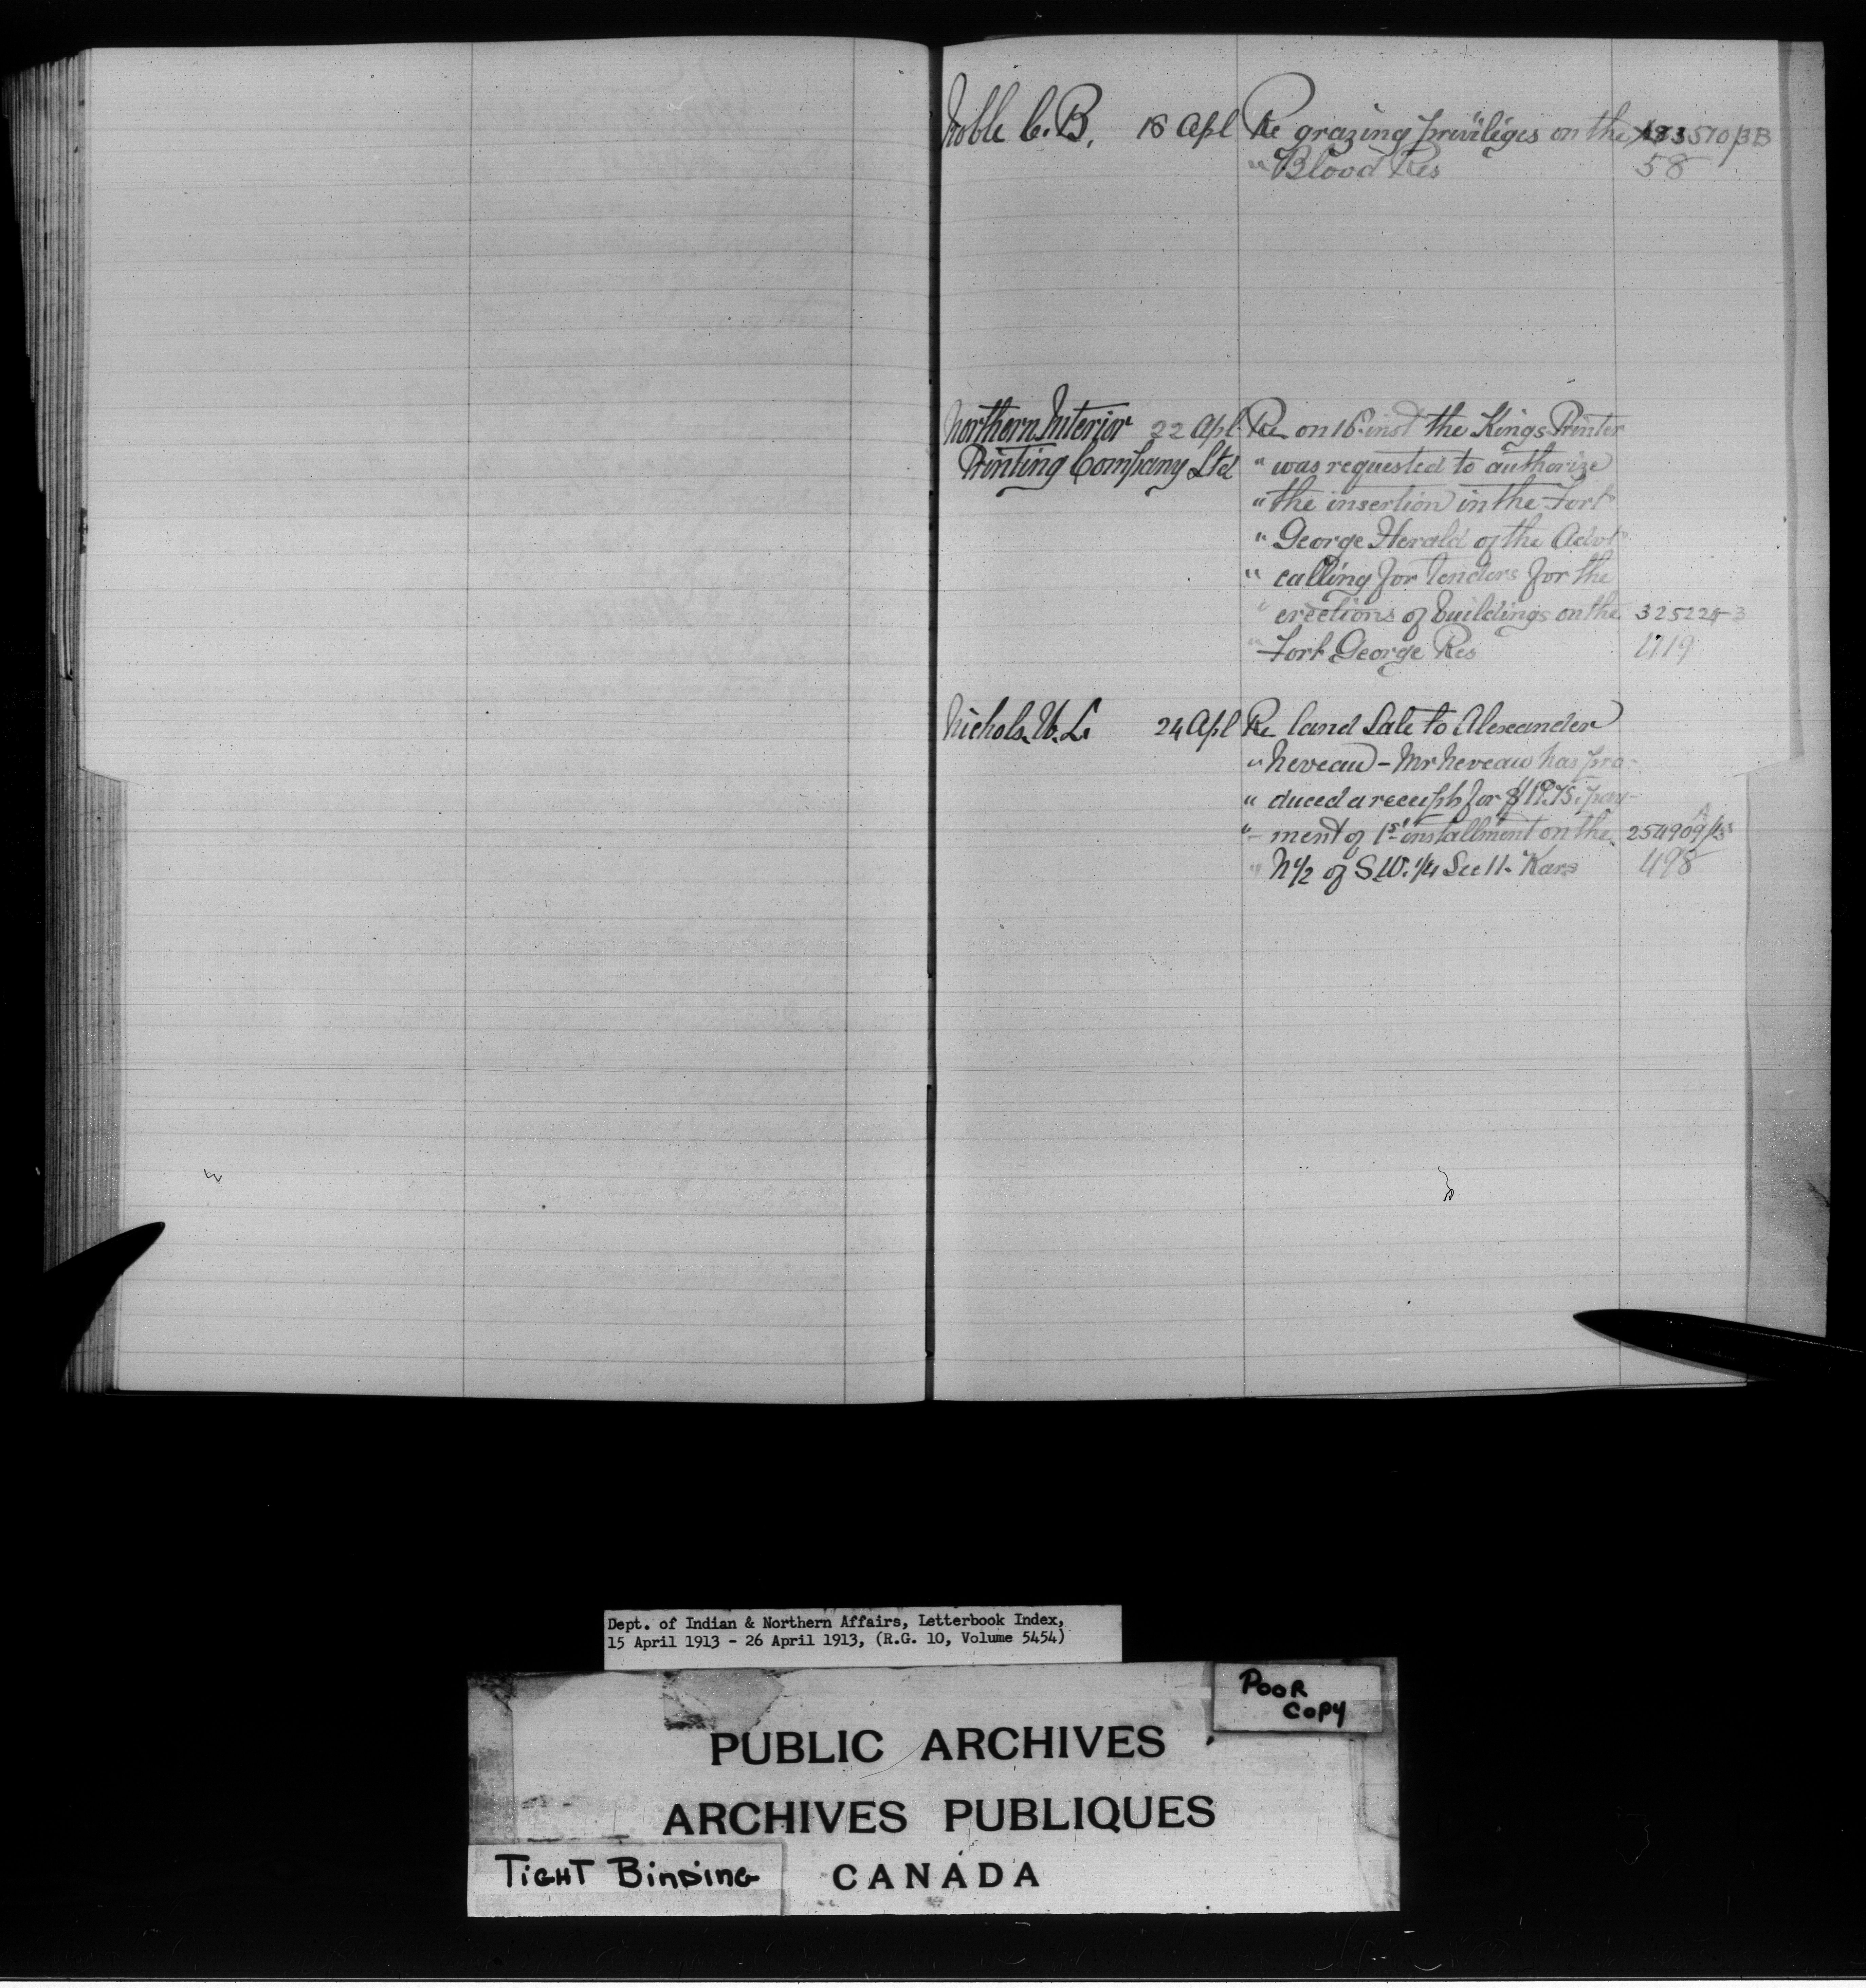 Noble C. B. 18 Apl Re grazing privileges on the 183570/3B
" Blood Res 58
Northern Interior 22 Apl Re on 16 inst the Kings Printer
Printing Company Ltd " was requested to authorize
" the insertion in the Fort
" George Herald of the Advt
" calling for tenders for the
" erections of buildings on the 325224-3
" Fort George Res 1719
Nichols. W. L. 24 Apl Re land Sale to Alexander
" Neveau - Mr Neveau has pro-
" duced a receipt for $ pay-
" ment of 1st installment on the 254909
" N 1/2 of S.W. 1/4 Sec 11. Kars 498
Dept. of Indian & Northern Affairs, Letterbook Index,
15 April 1913 - 26 April 1913, (R.G. 10, Volume 5454)
POOR
COPY
PUBLIC ARCHIVES
ARCHIVES PUBLIQUES
TIGHT BINDING CANADA